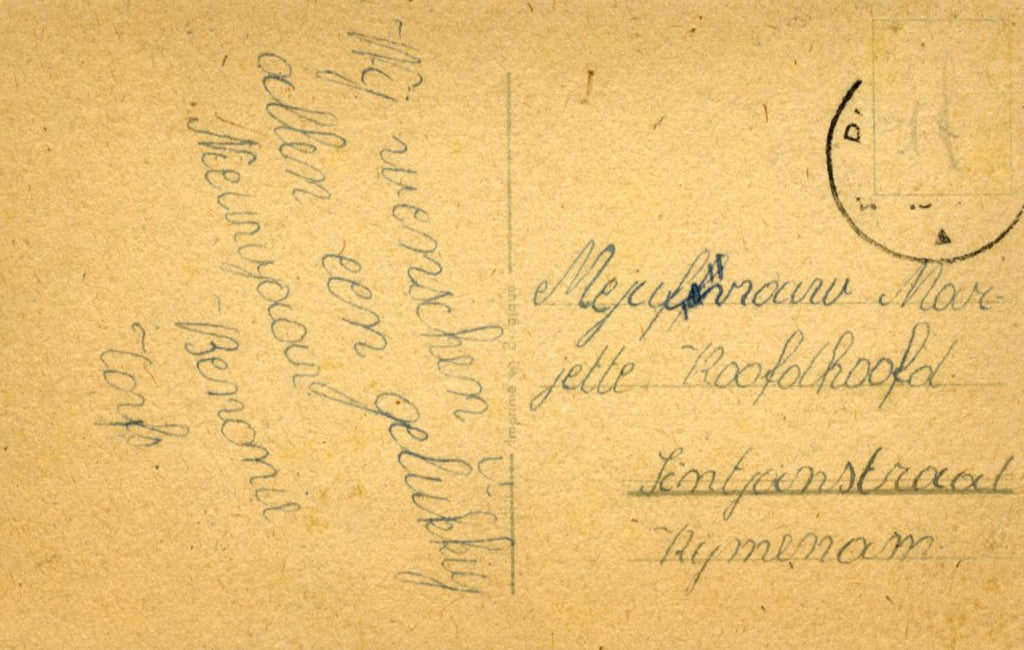 Wij wenschen U
allen een gelukkig
Nieuwjaar
Benonie
Torfs.
Imprimé en Belgique
Mejufvrouw Mar-
jette Koofdhoofd.
Sintjanstraat
Rymenam.